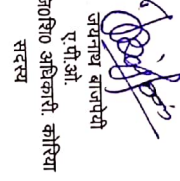 जयनाथ बाजपेयी
ए.पी.ओ.
जि0शि0 अधिकारी. कोरिया
सदस्य